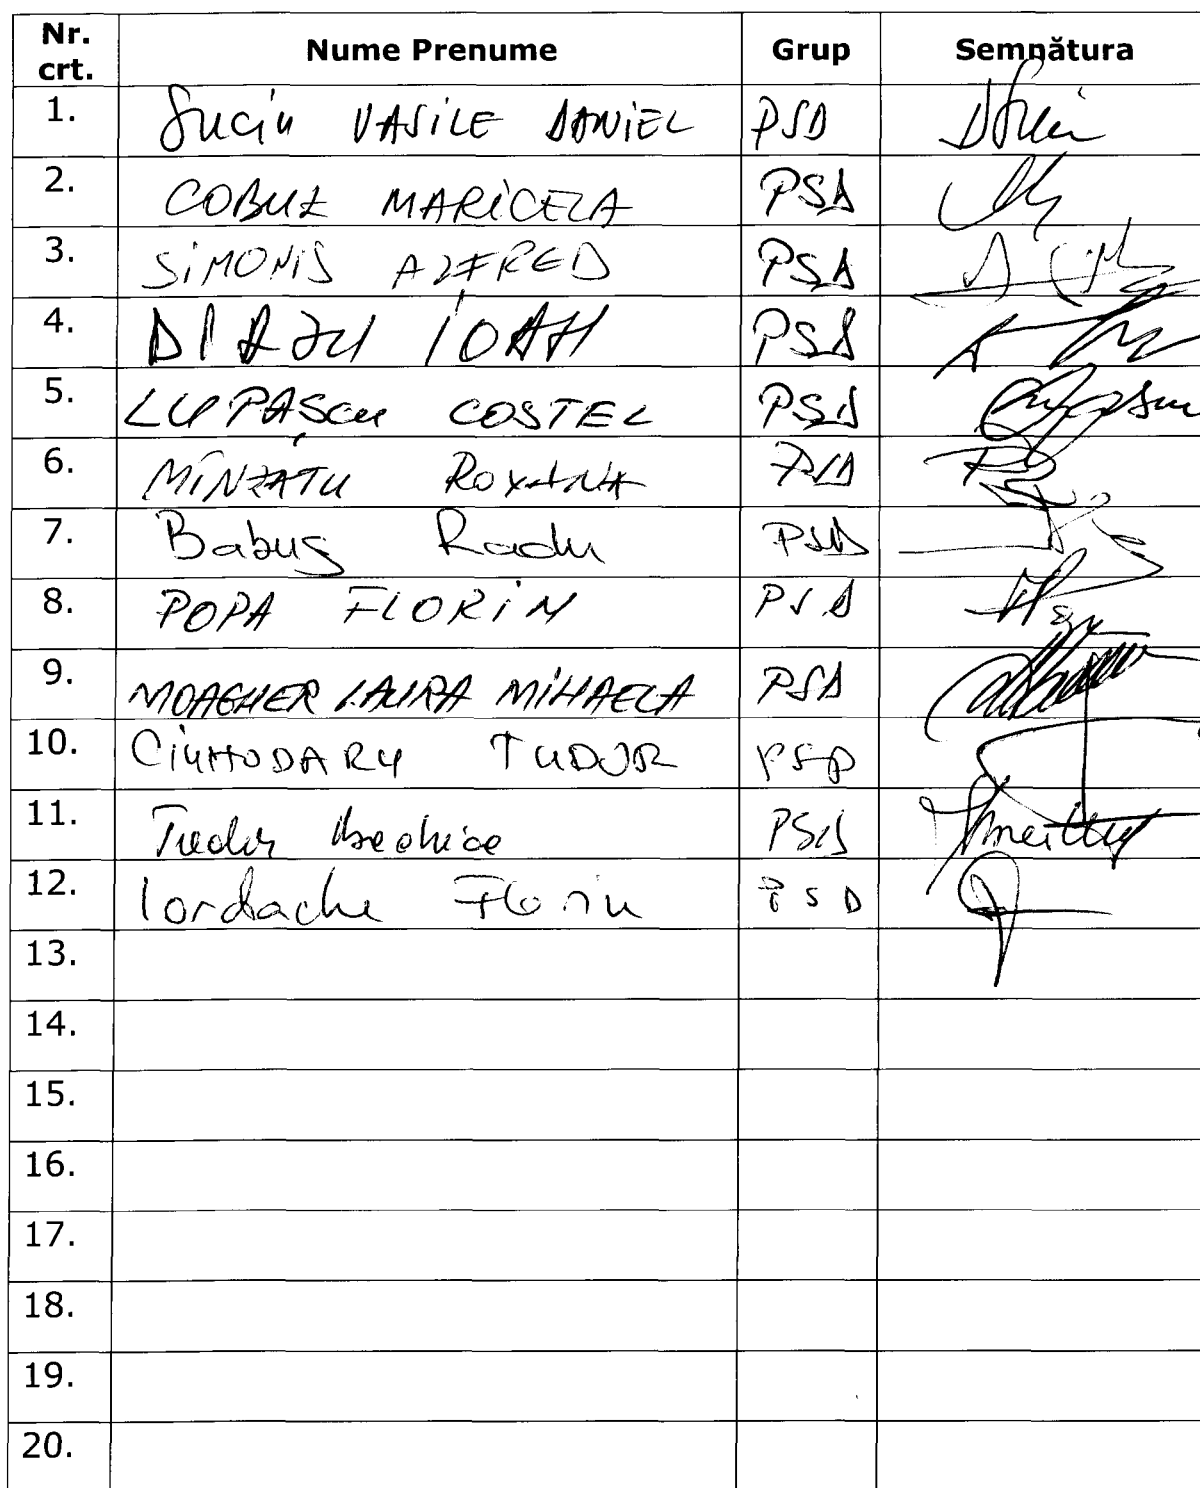 Nr. crt. Nume Prenume Grup Semnătura
1. Suciu VASILE DANIEL PSD
2. COBUZ MARICELA PSD
3. SIMONIS ALFRED PSD
4. DÎRZU IOAN PSD
5. LUPAȘCU COSTEL PSD
6. MÎNZATU ROXANA PSD
7. Babuș Radu PSD
8. POPA FLORIN PSD
9. MOAGHER LAURA MIHAELA PSD
10. CIUHODARU TUDOR PSD
11. Tudor PSD
12. Iordache Florin PSD
13.
14.
15.
16.
17.
18.
19.
20.